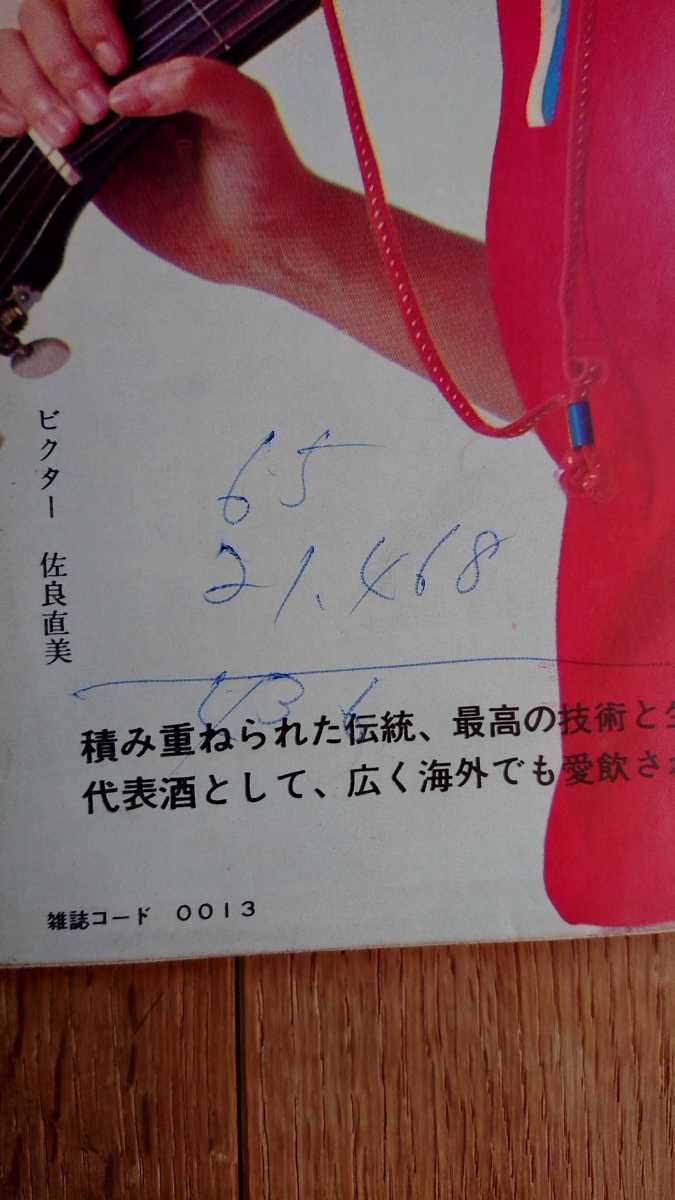 ビクター 佐良直美
65
21.468
積み重ねられた伝統、最高の技術と
代表酒として、広く海外でも愛飲さ
雑誌コード 0013